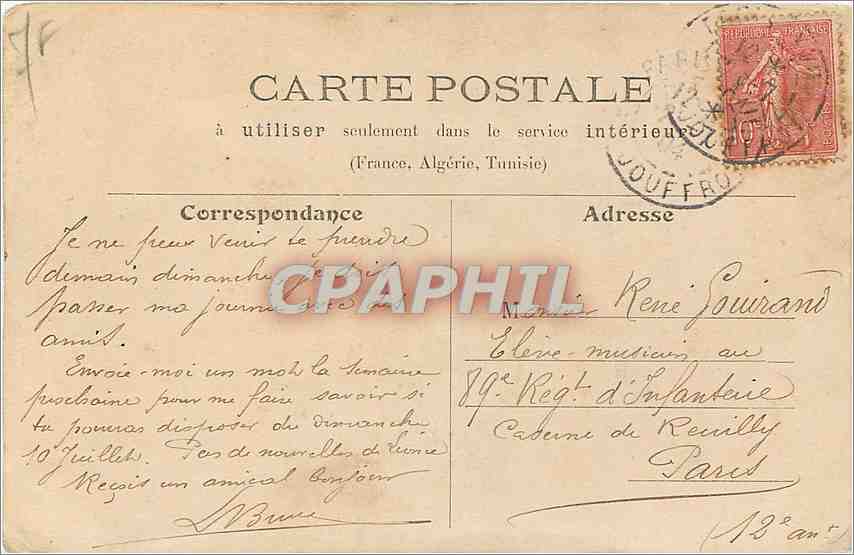 7F
RÉPUBLIQUE FRANÇAISE
10
POSTES
PARIS
JOUFFROY
CARTE POSTALE
à utiliser seulement dans le service intérieur
(France, Algérie, Tunisie)
Correspondance
Je ne peux venir te prendre
demain dimanche je dois
passer ma journée avec des
amis.
Envoie-moi un mot la semaine
prochaine pour me faire savoir si
tu pourras disposer du dimanche
10 Juillet. Pas de nouvelles de
Reçois un amical bonjour
CPAPHIL
Adresse
Monsieur René Gouirand
Elève-musicien au
89e Régt d'Infanterie
Caserne de Reuilly
Paris
(12e arrt